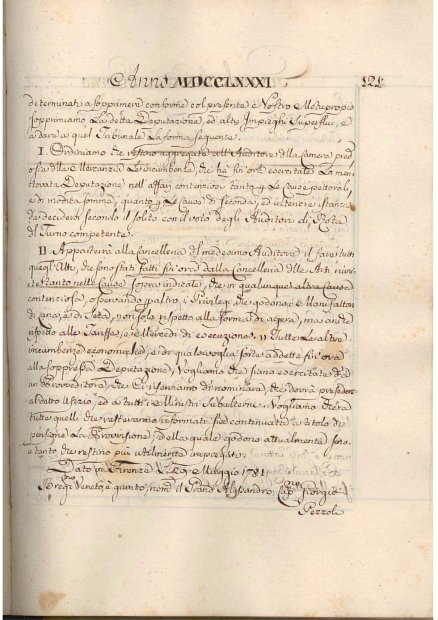 Anno MDCCLXXXI 121
determinati a sopprimere conforme col presente e Nostro Motuproprio
sopprimiamo La detta Deputazione, ed altri Impieghi Superflui, e
a dare a quel Tribunale La forma seguente.
I. Ordiniamo che restino aggregate all'Auditore della Camera pred
della Mercanzia Le incumbenze che ha fin ora esercitate La men
tovata Deputazione nell'affari contenziosi tanto Le Cause pettorali,
e di modica somma, quanto Le Cause di seconda, ed ulteriore istanza
da decidersi secondo il solito con il voto degli Auditori di Rota
del Turno competente.
II. Apparterrà alla Cancelleria del medesimo Auditore il fare tutti
quegl'Atti, che sono stati fatti fin ora dalla Cancelleria delle Arti riuni
te tanto nelle Cause sopra indicate, che in qualunque altra Causa
contenziosa, osservando i Privilegi che godono i Manifattori
di Lana, e di Seta, non solo rispetto alla forma di agere, ma anche
rispetto alle Tariffe, e Mercedi di esecuzione. Tutte Le altre
incumbenze economiche, e di qualsivoglia sorte addette fin ora
alla soppressa Deputazione, Vogliamo che siano esercitate da
un Provveditore, che Ci riserviamo di nominare, che dovrà presedere
al detto Ufizio, ed a tutti i Ministri Subalterni. Vogliamo che a
tutti quelli che resteranno riformati sia continuata a titolo di
pensione La Provvisione, della quale godono attualmente fino
a tanto che restino più utilmente impiegati.
Dato in Firenze Li 9 Maggio 1781
Giorgio
Pezzoli